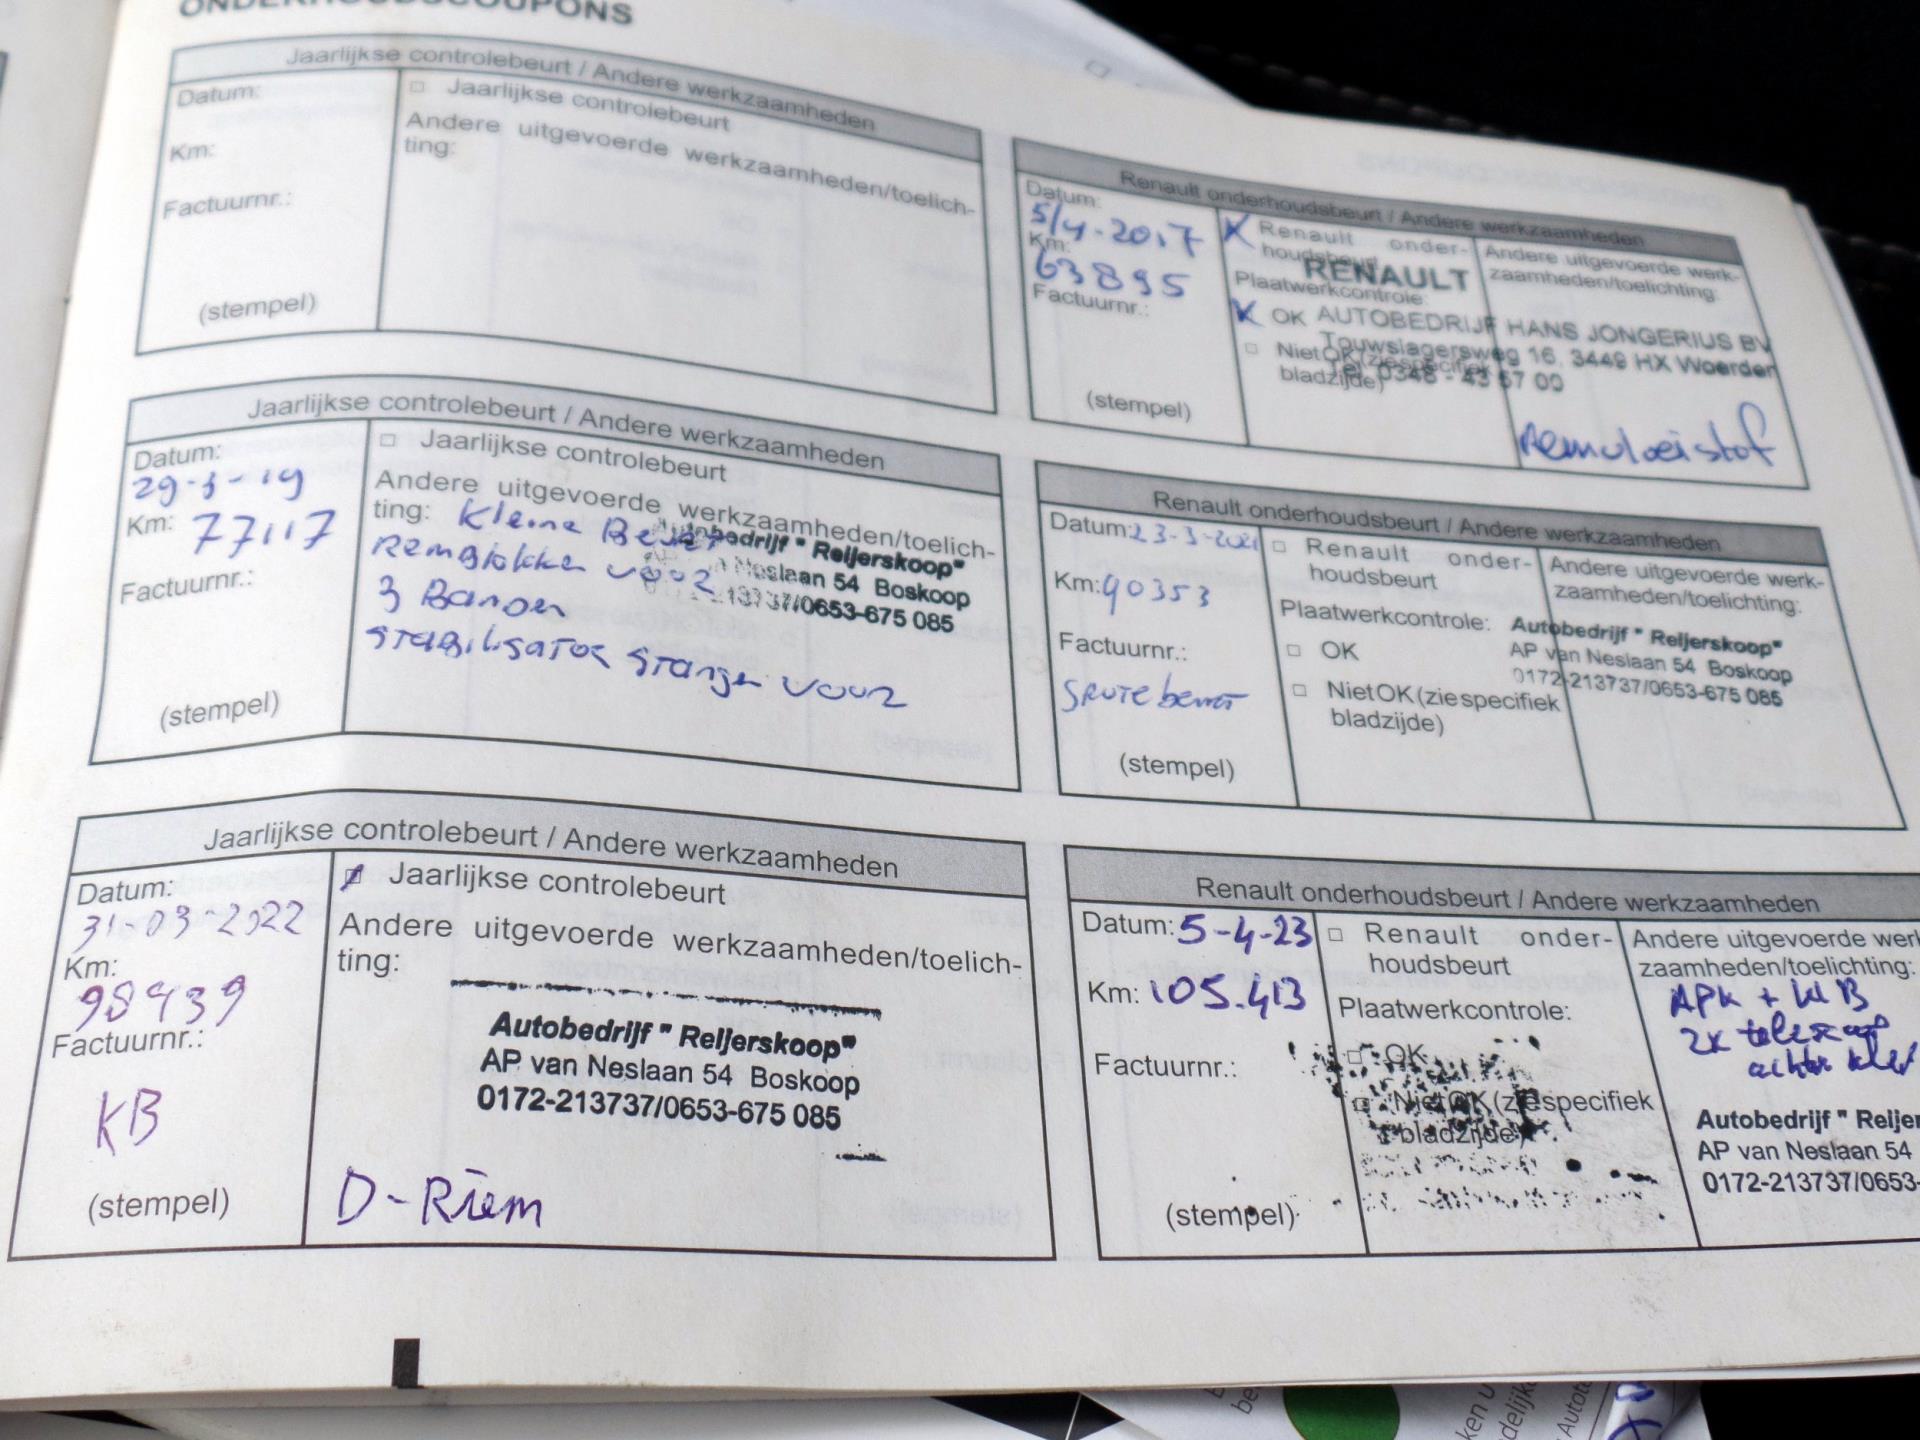 ONDERHOUDSCOUPONS
Jaarlijkse controlebeurt / Andere werkzaamheden
Datum:
Km:
Factuurnr.:
(stempel)
□ Jaarlijkse controlebeurt
Andere uitgevoerde werkzaamheden/toelich-
ting:
Renault onderhoudsbeurt / Andere werkzaamheden
Datum:
5/4-2017
Km:
63895
Factuurnr.:
(stempel)
X Renault onder-
houdsbeurt
Plaatwerkcontrole:
X OK
□ Niet OK (zie specifiek
bladzijde)
Andere uitgevoerde werk-
zaamheden/toelichting:
RENAULT
AUTOBEDRIJF HANS JONGERIUS BV
Touwslagersweg 16, 3449 HX Woerden
Tel. 0348 - 43 57 00
Remvloeistof
Jaarlijkse controlebeurt / Andere werkzaamheden
Datum:
29-3-19
Km: 77117
Factuurnr.:
(stempel)
□ Jaarlijkse controlebeurt
Andere uitgevoerde werkzaamheden/toelich-
ting: Kleine Beurt
Remblokken voor
3 Banden
Stabilisator Stangen voor
Autobedrijf " Reijerskoop"
Neslaan 54 Boskoop
213737/0653-675 085
Renault onderhoudsbeurt / Andere werkzaamheden
Datum: 23-3-2021
Km: 90353
Factuurnr.:
Grote beurt
(stempel)
□ Renault onder-
houdsbeurt
Plaatwerkcontrole:
□ OK
□ Niet OK (zie specifiek
bladzijde)
Andere uitgevoerde werk-
zaamheden/toelichting:
Autobedrijf " Reijerskoop"
AP van Neslaan 54 Boskoop
0172-213737/0653-675 085
Jaarlijkse controlebeurt / Andere werkzaamheden
Datum:
31-03-2022
Km:
98939
Factuurnr.:
KB
(stempel)
Jaarlijkse controlebeurt
Andere uitgevoerde werkzaamheden/toelich-
ting:
Autobedrijf " Reijerskoop"
AP van Neslaan 54 Boskoop
0172-213737/0653-675 085
D-Riem
Renault onderhoudsbeurt / Andere werkzaamheden
Datum: 5-4-23
Km: 105.413
Factuurnr.:
(stempel)
□ Renault onder-
houdsbeurt
Plaatwerkcontrole:
□ OK
□ Niet OK (zie specifiek
bladzijde)
Andere uitgevoerde werk
zaamheden/toelichting:
APK + KB
2x telescoop
achter klep
Autobedrijf " Reijer
AP van Neslaan 54
0172-213737/0653-